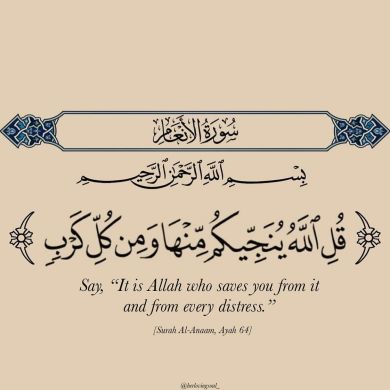 سُورَةُ الأَنْعَامِ
بِسْمِ ٱللَّهِ ٱلرَّحْمَٰنِ ٱلرَّحِيمِ
قُلِ ٱللَّهُ يُنَجِّيكُم مِّنْهَا وَمِن كُلِّ كَرْبٍ
Say, “It is Allah who saves you from it
and from every distress.”
[Surah Al-Anaam, Ayah 64]
@herlovingsoul_